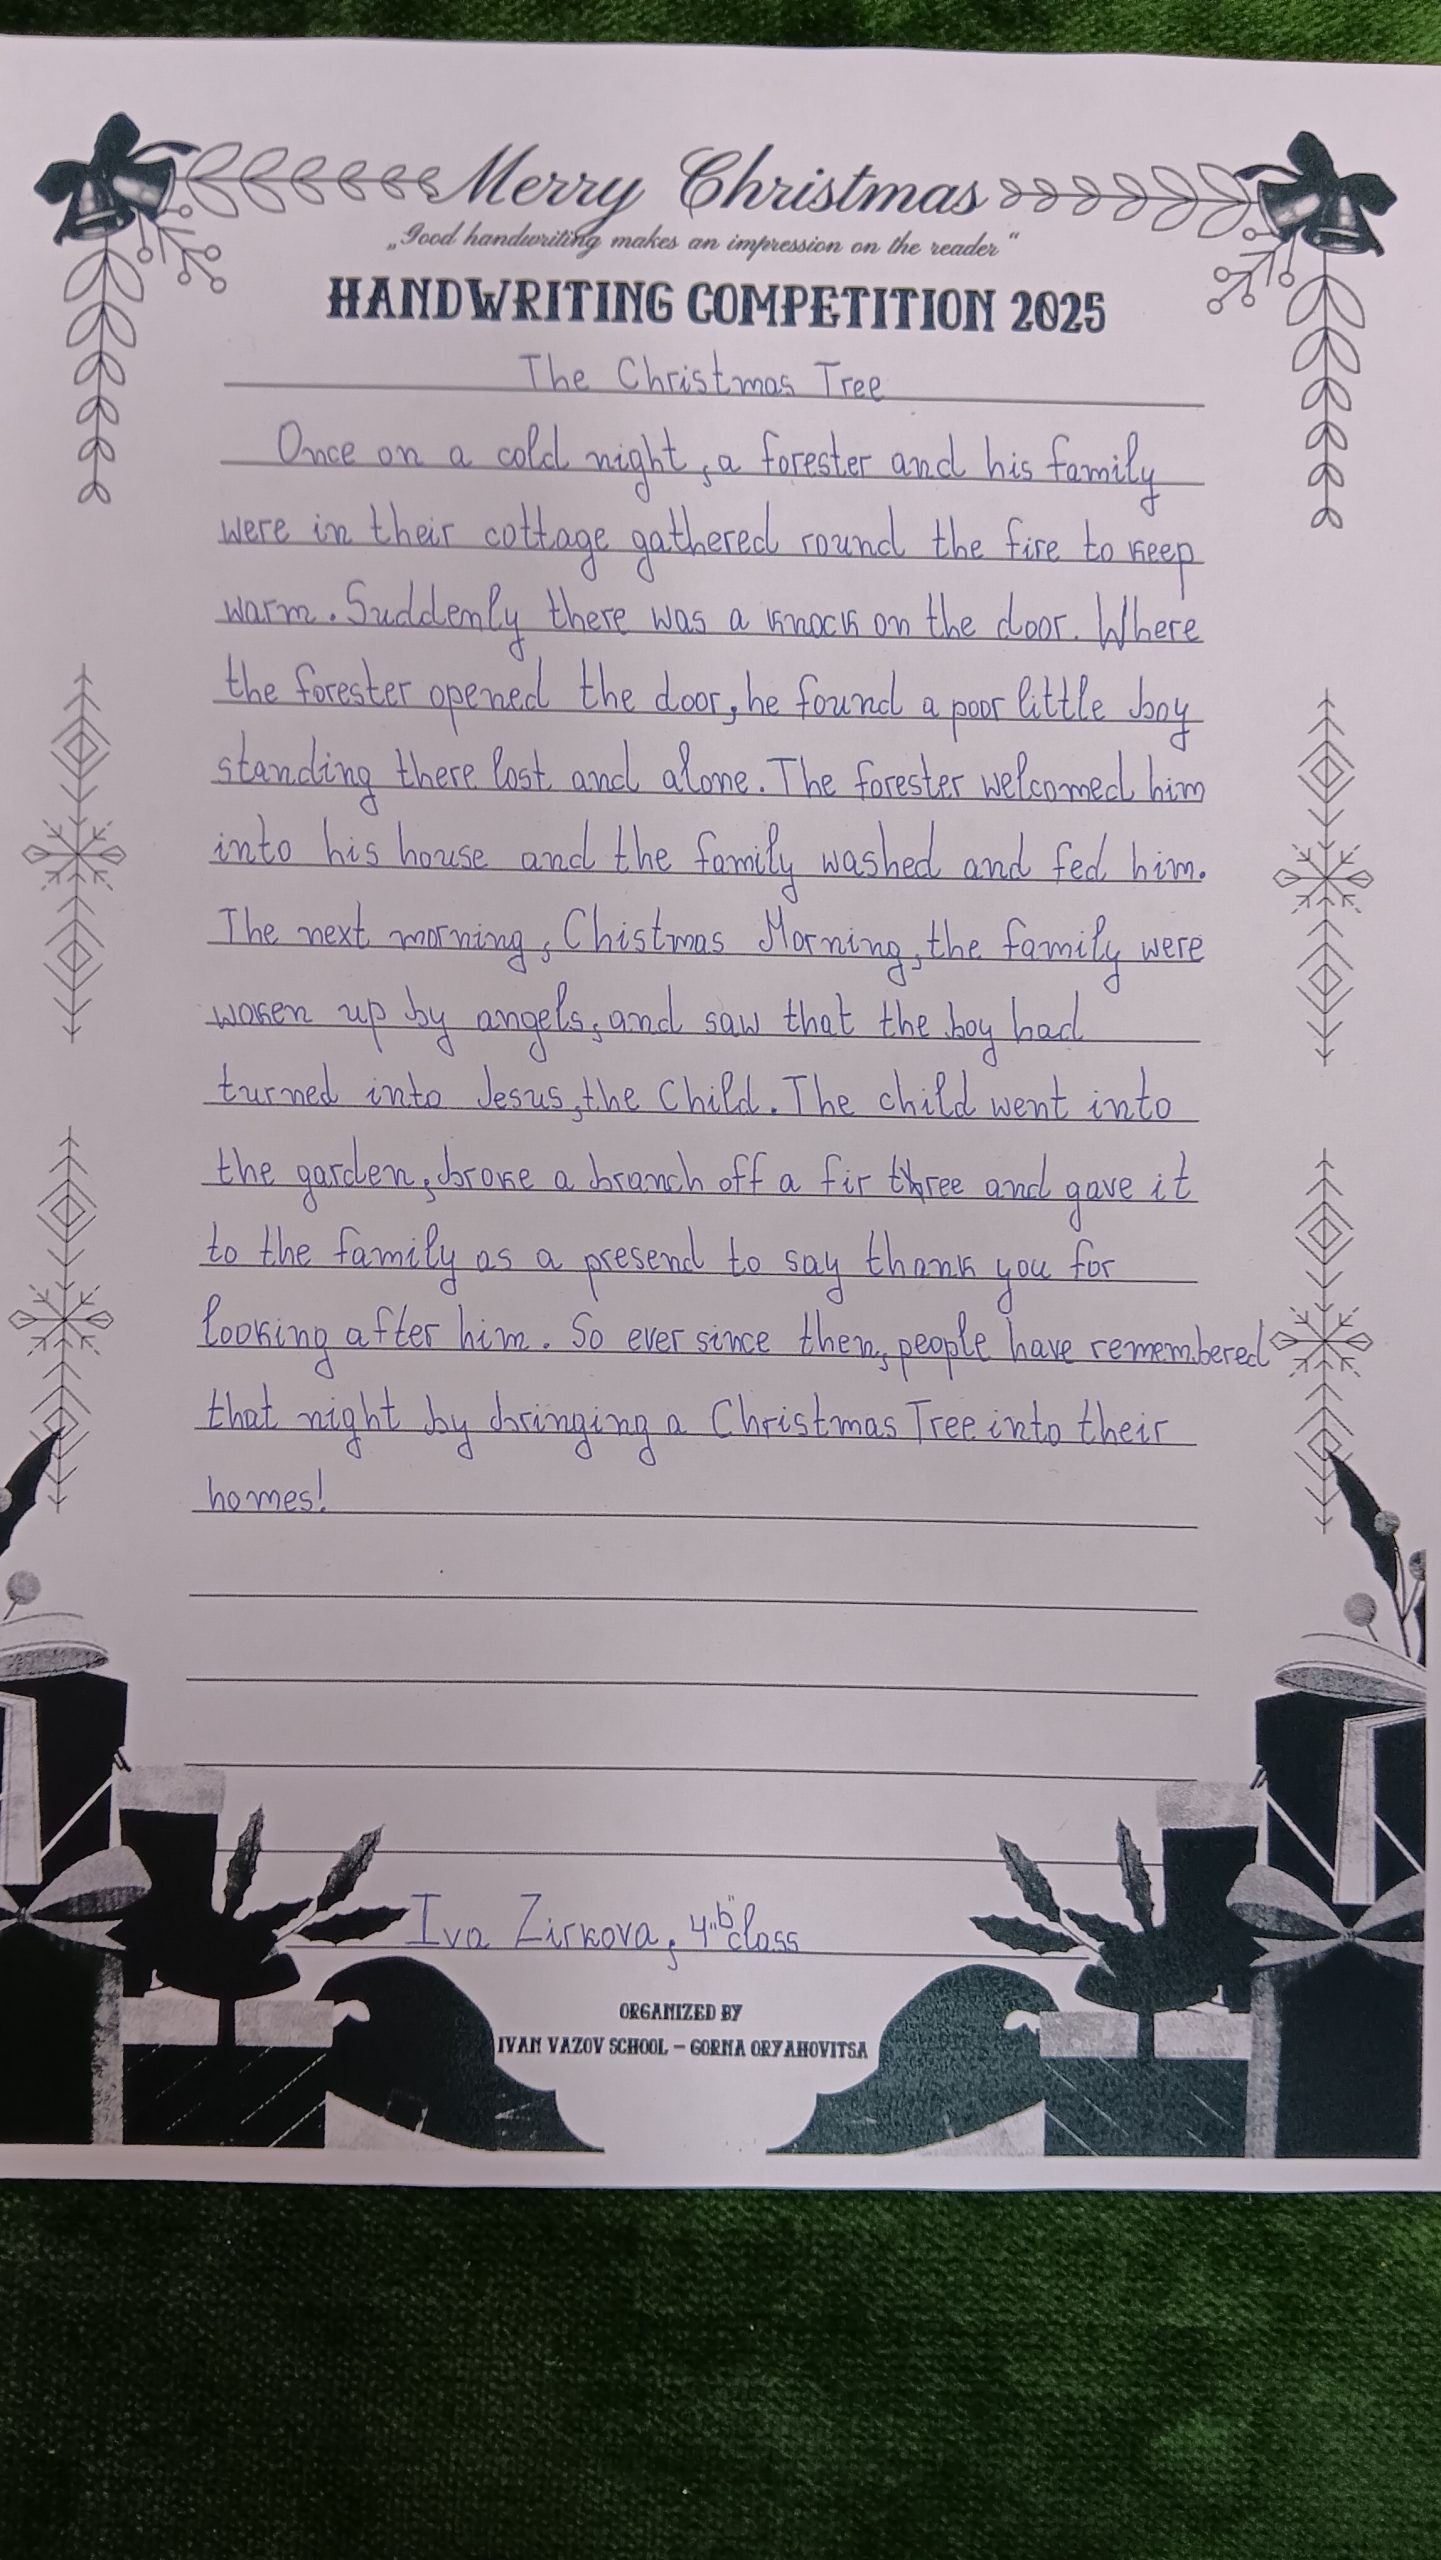 Merry Christmas
„Good handwriting makes an impression on the reader“
HANDWRITING COMPETITION 2025
The Christmas Tree
Once on a cold night, a forester and his family
were in their cottage gathered round the fire to keep
warm. Suddenly there was a knock on the door. Where
the forester opened the door, he found a poor little boy
standing there lost and alone. The forester welcomed him
into his house and the family washed and fed him.
The next morning, Chistmas Morning, the family were
woken up by angels, and saw that the boy had
turned into Jesus, the Child. The child went into
the garden, broke a branch off a fir three and gave it
to the family as a presend to say thank you for
looking after him. So ever since then, people have remembered
that night by bringing a Christmas Tree into their
homes!
Iva Zirkova, 4"b" class
ORGANIZED BY
IVAN VAZOV SCHOOL – GORNA ORYAHOVITSA